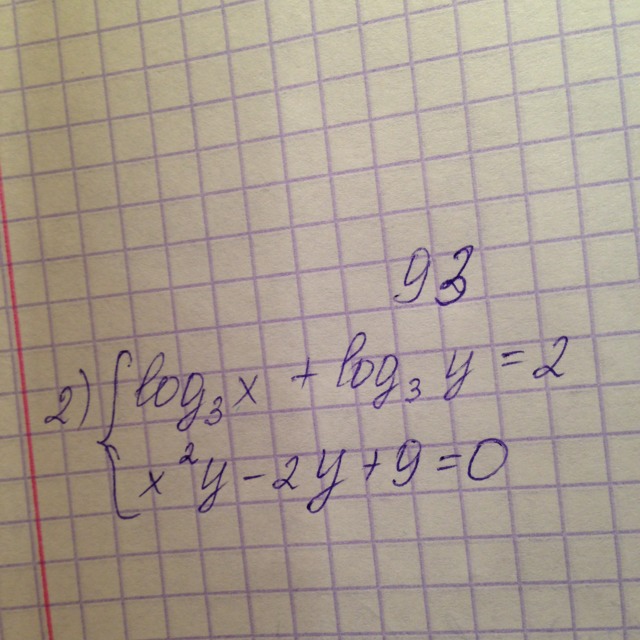 93
2) { log₃ x + log₃ y = 2
x²y - 2y + 9 = 0